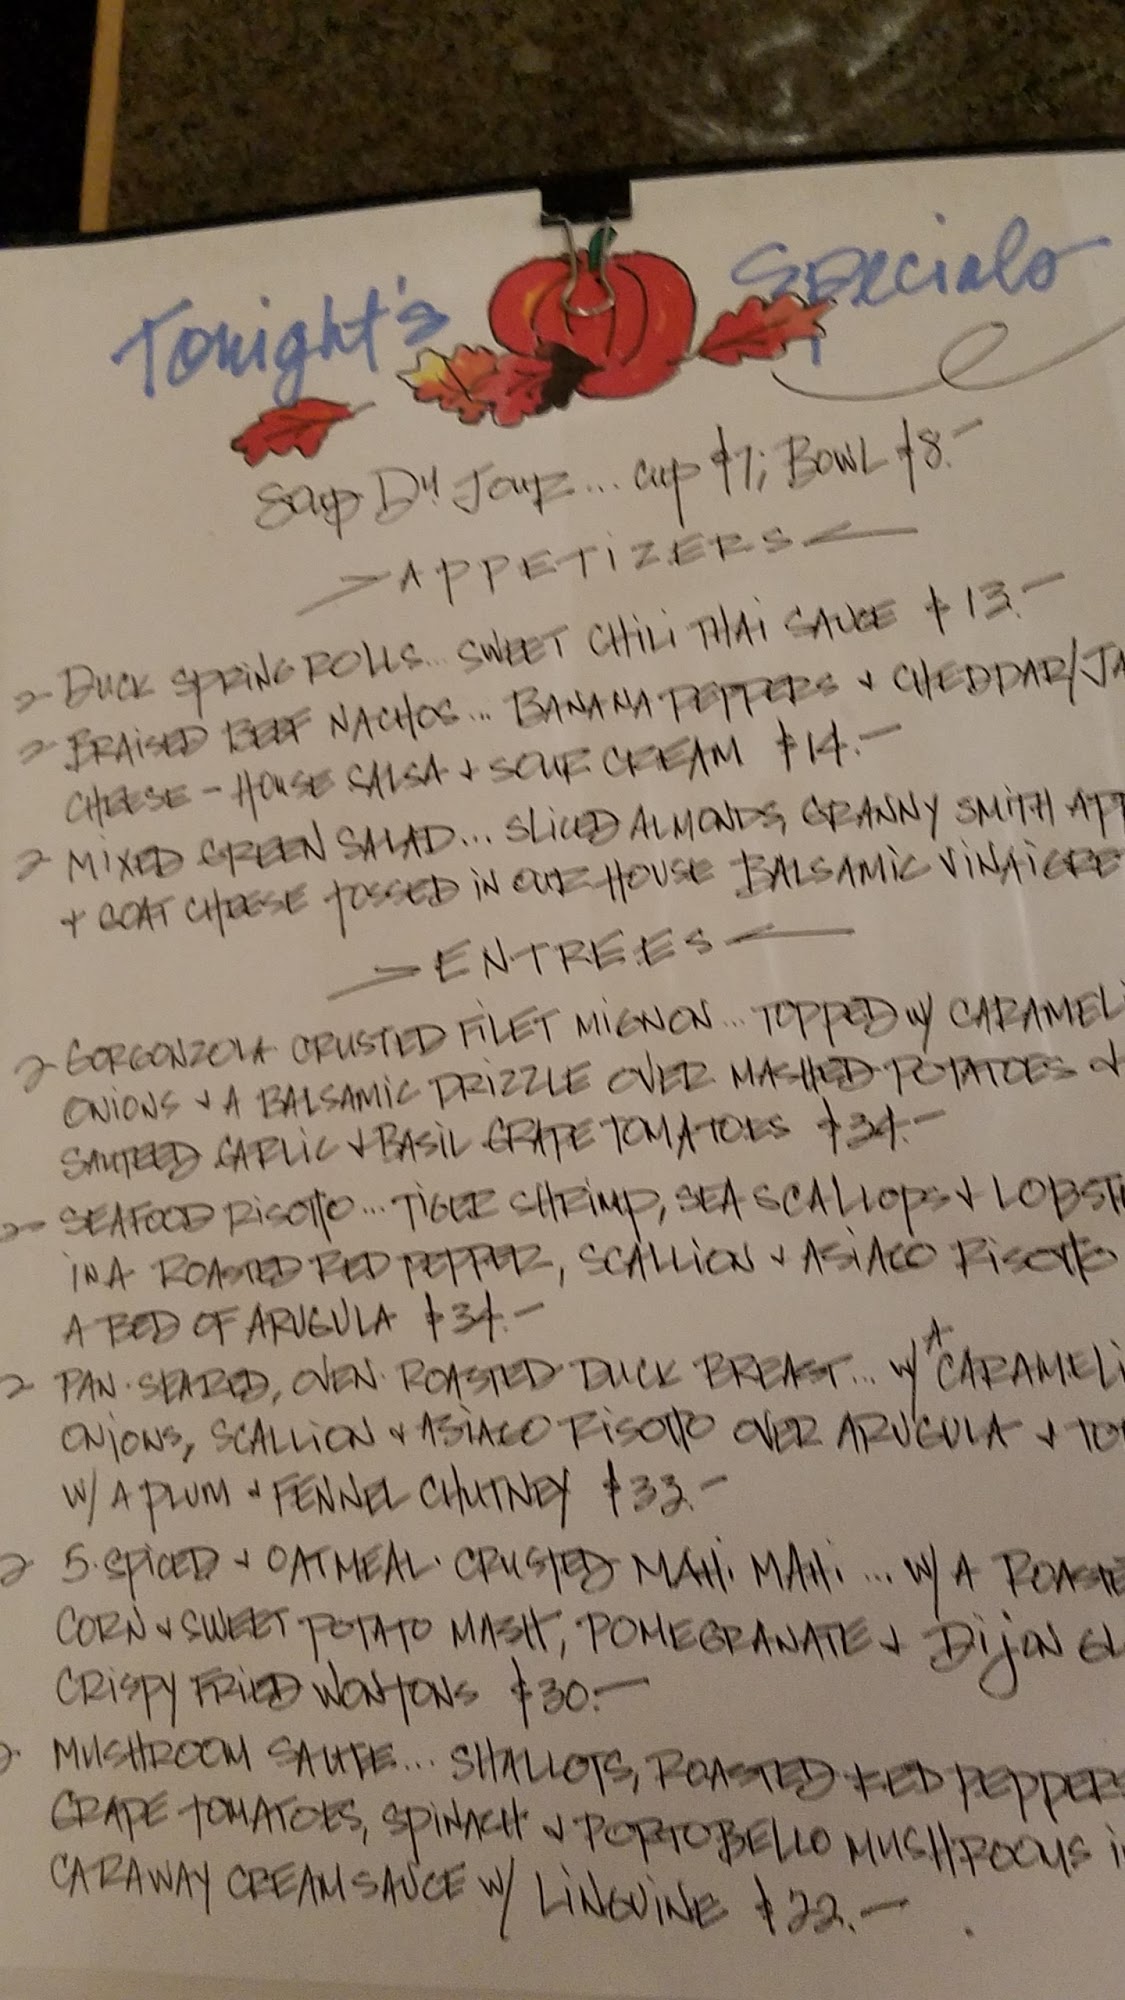 Tonight's Specials
Soup Du Jour... cup $7; Bowl $8.-
APPETIZERS
DUCK SPRING ROLLS... SWEET CHILI THAI SAUCE $13.-
BRAISED BEEF NACHOS... BANANA PEPPERS & CHEDDAR/JA
CHEESE - HOUSE SALSA & SOUR CREAM $14.-
MIXED GREEN SALAD... SLICED ALMONDS, GRANNY SMITH APP
& GOAT CHEESE TOSSED IN OUR HOUSE BALSAMIC VINAIGRE
ENTREES
GORGONZOLA CRUSTED FILET MIGNON... TOPPED W/ CARAMELI
ONIONS & A BALSAMIC DRIZZLE OVER MASHED POTATOES &
SAUTEED GARLIC & BASIL GRAPE TOMATOES $34.-
SEAFOOD RISOTTO... TIGER SHRIMP, SEA SCALLOPS & LOBST
IN A ROASTED RED PEPPER, SCALLION & ASIAGO RISOTTO
A BED OF ARUGULA $34.-
PAN-SEARED, OVEN-ROASTED DUCK BREAST... W/ A CARAMELI
ONIONS, SCALLION & ASIAGO RISOTTO OVER ARUGULA & TO
W/ A PLUM & FENNEL CHUTNEY $33.-
5-SPICED & OATMEAL-CRUSTED MAHI MAHI... W/ A ROASTE
CORN & SWEET POTATO MASH, POMEGRANATE & DIJON GL
CRISPY FRIED WONTONS $30.-
MUSHROOM SAUTE... SHALLOTS, ROASTED RED PEPPERS
GRAPE TOMATOES, SPINACH & PORTOBELLO MUSHROOMS I
CARAWAY CREAM SAUCE W/ LINGUINE $22.-